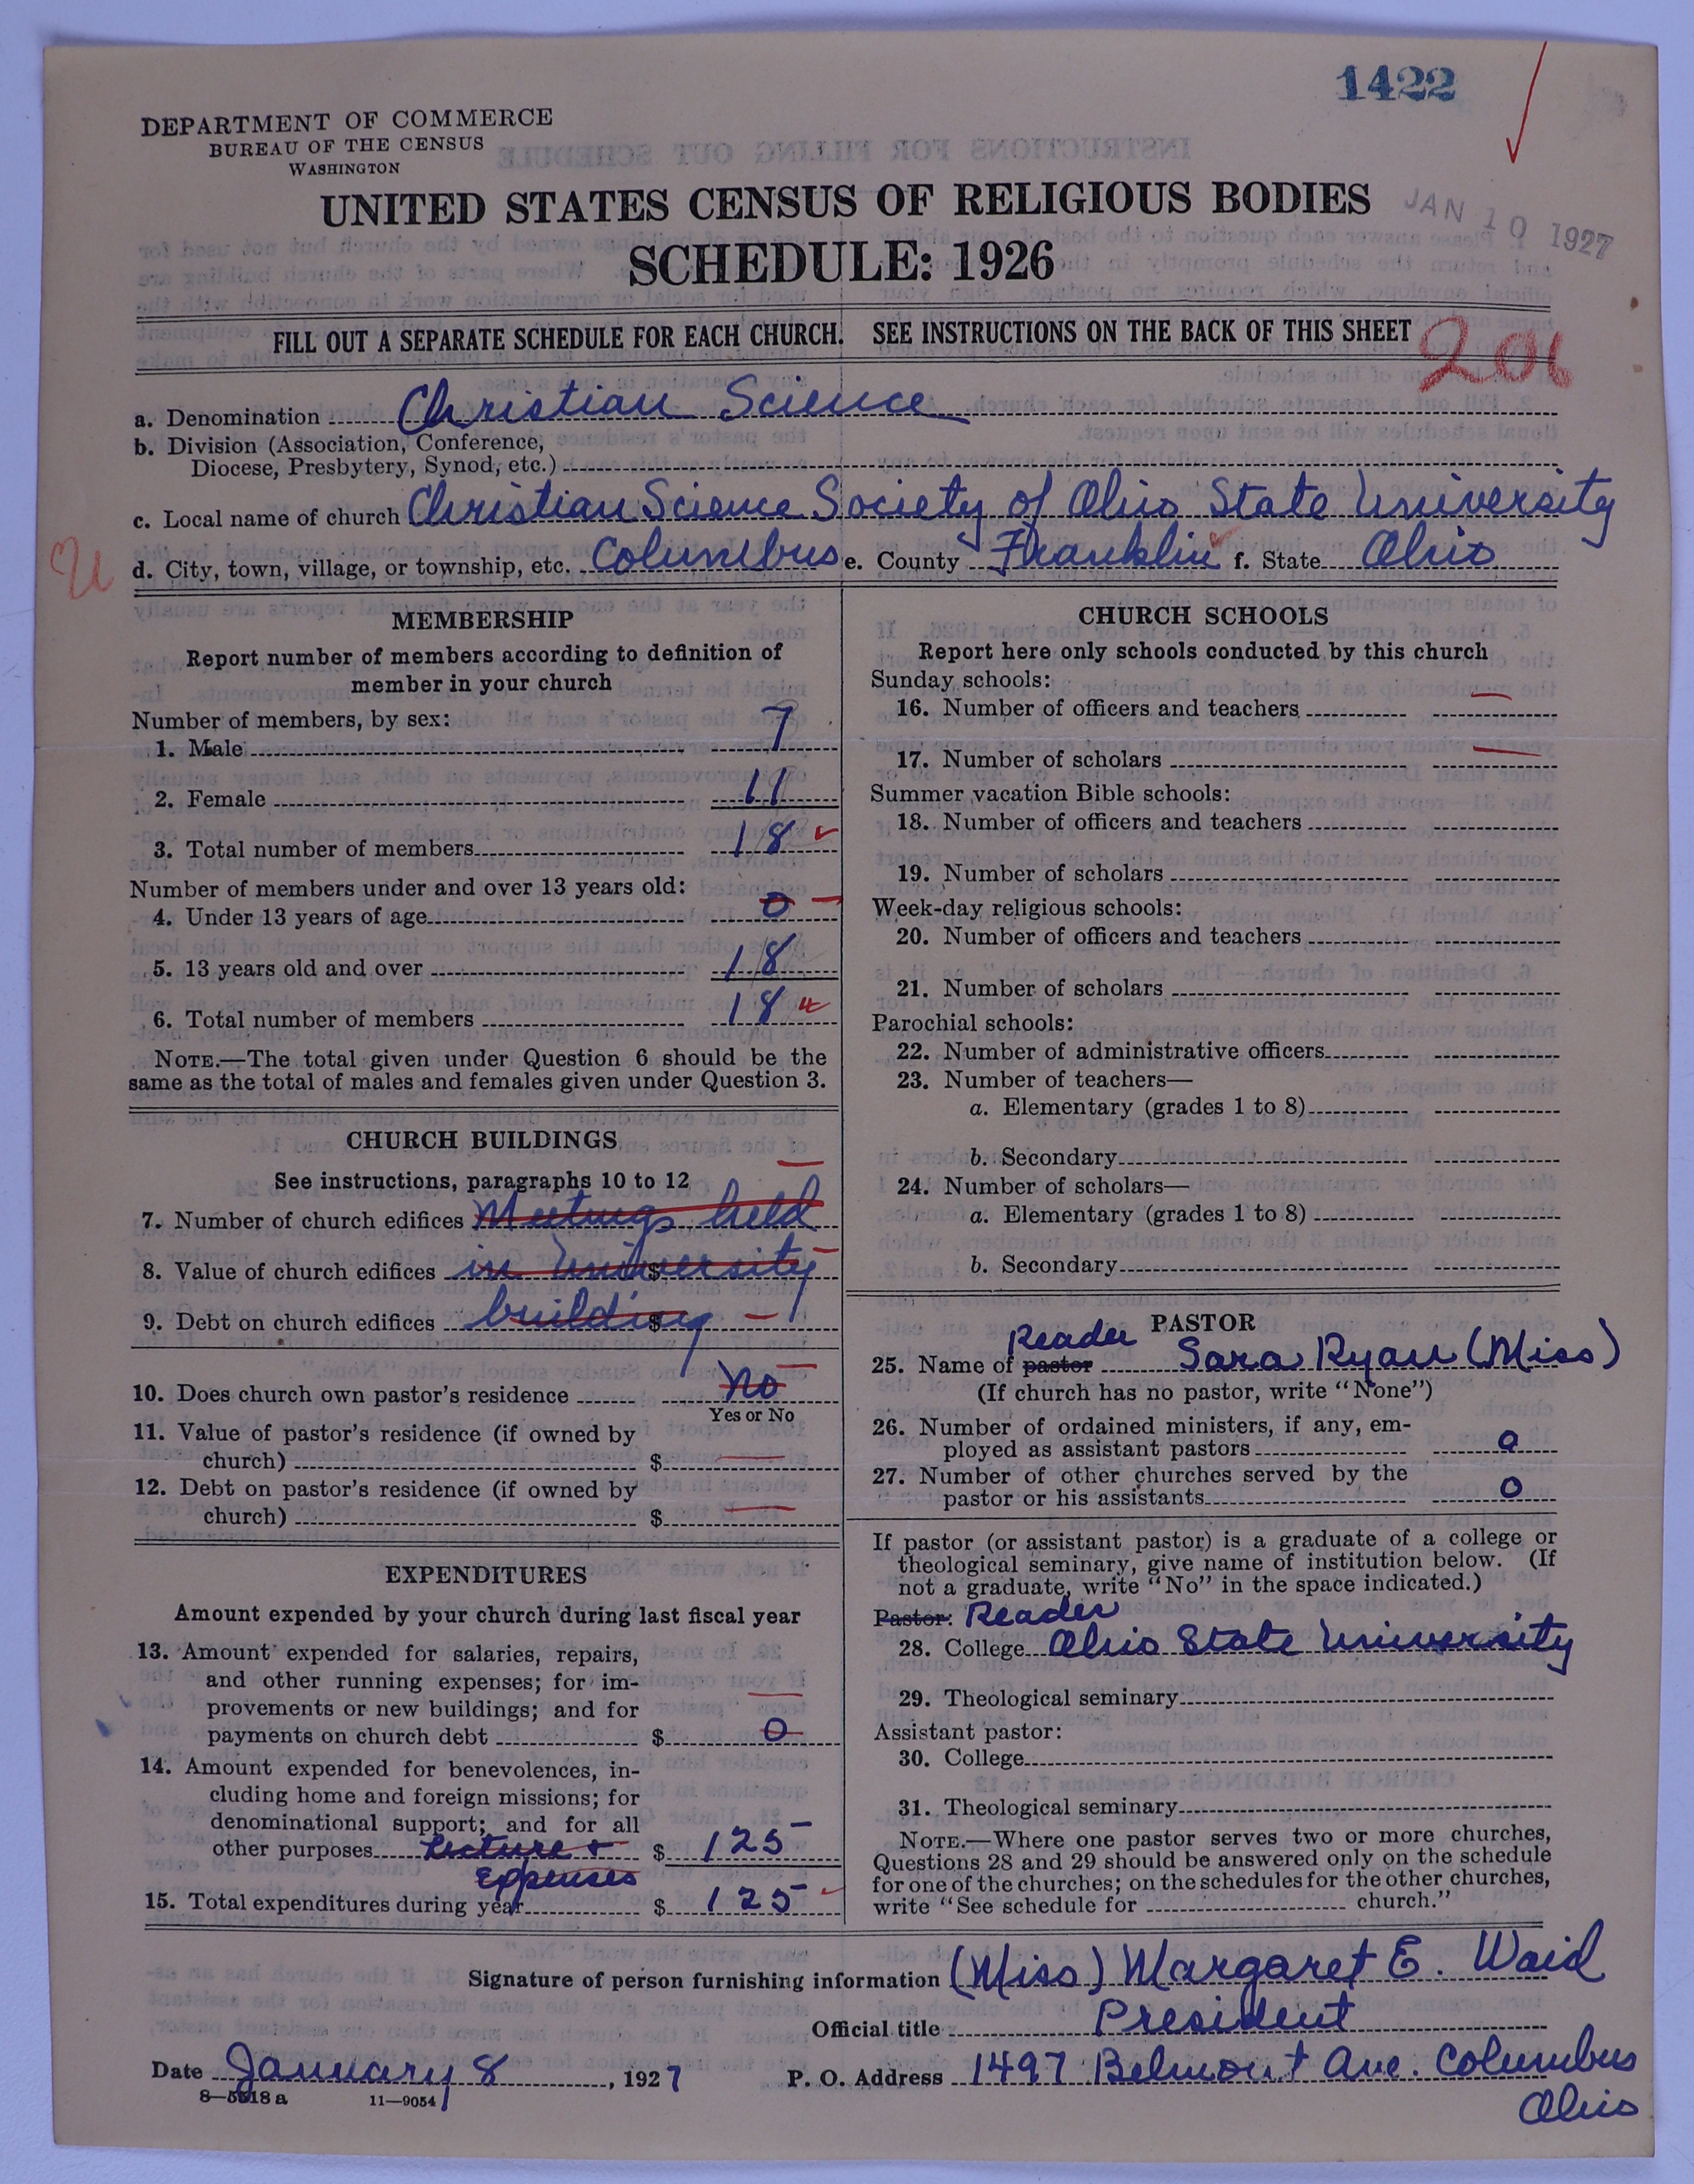 1422
DEPARTMENT OF COMMERCE
BUREAU OF THE CENSUS
WASHINGTON
UNITED STATES CENSUS OF RELIGIOUS BODIES
JAN 10 1927
SCHEDULE: 1926
FILL OUT A SEPARATE SCHEDULE FOR EACH CHURCH. SEE INSTRUCTIONS ON THE BACK OF THIS SHEET
206
a. Denomination Christian Science
b. Division (Association, Conference,
Diocese, Presbytery, Synod, etc.)
c. Local name of church Christian Science Society of Ohio State University
d. City, town, village, or township, etc. Columbus e. County Franklin f. State Ohio
MEMBERSHIP
Report number of members according to definition of
member in your church
Number of members, by sex:
1. Male 7
2. Female 11
3. Total number of members 18
Number of members under and over 13 years old:
4. Under 13 years of age 0
5. 13 years old and over 18
6. Total number of members 18
NOTE.—The total given under Question 6 should be the
same as the total of males and females given under Question 3.
CHURCH BUILDINGS
See instructions, paragraphs 10 to 12
7. Number of church edifices Meetings held
8. Value of church edifices in University $
9. Debt on church edifices building $
10. Does church own pastor's residence No
Yes or No
11. Value of pastor's residence (if owned by
church) $
12. Debt on pastor's residence (if owned by
church) $
EXPENDITURES
Amount expended by your church during last fiscal year
13. Amount expended for salaries, repairs,
and other running expenses; for im-
provements or new buildings; and for
payments on church debt $ 0
14. Amount expended for benevolences, in-
cluding home and foreign missions; for
denominational support; and for all
other purposes Lecture + $ 125-
Expenses
15. Total expenditures during year $ 125-
CHURCH SCHOOLS
Report here only schools conducted by this church
Sunday schools:
16. Number of officers and teachers —
17. Number of scholars —
Summer vacation Bible schools:
18. Number of officers and teachers
19. Number of scholars
Week-day religious schools:
20. Number of officers and teachers
21. Number of scholars
Parochial schools:
22. Number of administrative officers
23. Number of teachers—
a. Elementary (grades 1 to 8)
b. Secondary
24. Number of scholars—
a. Elementary (grades 1 to 8)
b. Secondary
PASTOR
Reader
25. Name of pastor Sara Ryan (Miss)
(If church has no pastor, write "None")
26. Number of ordained ministers, if any, em-
ployed as assistant pastors 0
27. Number of other churches served by the
pastor or his assistants 0
If pastor (or assistant pastor) is a graduate of a college or
theological seminary, give name of institution below. (If
not a graduate, write "No" in the space indicated.)
Pastor: Reader
28. College Ohio State University
29. Theological seminary
Assistant pastor:
30. College
31. Theological seminary
NOTE.—Where one pastor serves two or more churches,
Questions 28 and 29 should be answered only on the schedule
for one of the churches; on the schedules for the other churches,
write "See schedule for church."
Signature of person furnishing information (Miss) Margaret E. Waid
Official title President
Date January 8, 1927 P. O. Address 1497 Belmont Ave. Columbus
Ohio
8—5518 a 11—9054